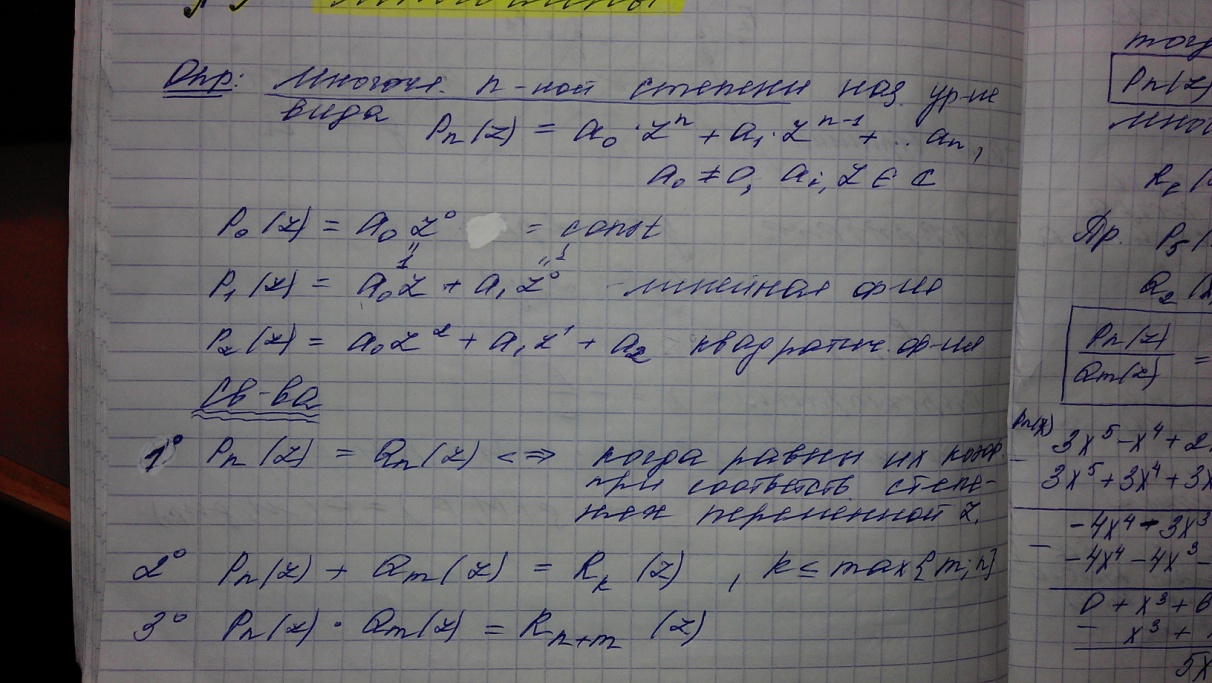 Опр: Многочл. n-ной степени наз. ур-ие
вида
Pₙ(z) = a₀·zⁿ + a₁·zⁿ⁻¹ + ... aₙ,
a₀ ≠ 0, aᵢ, z ∈ C
P₀(z) = a₀ z⁰ = const
"
1
" 1
P₁(z) = a₀z + a₁z⁰ линейная ф-ия
P₂(z) = a₀z² + a₁z¹ + a₂ квадратич. ф-ия
Св-ва
1° Pₙ(z) = Qₙ(z) <=> когда равны их коэф
при соответств степе-
нях переменной z.
2° Pₙ(z) + Qₘ(z) = Rₖ(z), k ≤ max{m;n}
3° Pₙ(z) · Qₘ(z) = Rₙ₊ₘ (z)
Pₙ(z)
Пр. P₅
Q₂
Pₙ(z)
Qₘ(z) =
Pₙ(x)
3x⁵ - x⁴ + 2
- 3x⁵ + 3x⁴ + 3x
-4x⁴ - 3x³
- -4x⁴ - 4x³ -
0 + x³ + 6
- x³ +
5x